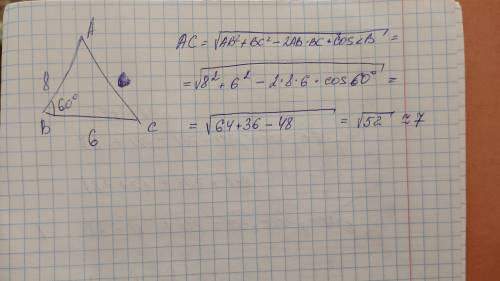 A
8
60°
B
6
C
AC = √AB² + BC² - 2AB · BC · cos∠B =
= √8² + 6² - 2 · 8 · 6 · cos 60° =
= √64 + 36 - 48 = √52 ≈ 7